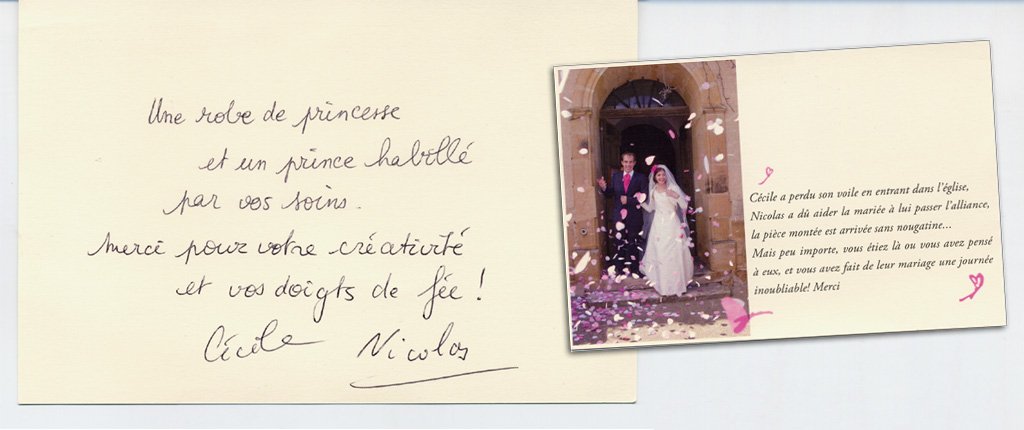 Une robe de princesse
et un prince habillé
par vos soins.
Merci pour votre créativité
et vos doigts de fée !
Cécile Nicolas
Cécile a perdu son voile en entrant dans l'église,
Nicolas a dû aider la mariée à lui passer l'alliance,
la pièce montée est arrivée sans nougatine...
Mais peu importe, vous étiez là ou vous avez pensé
à eux, et vous avez fait de leur mariage une journée
inoubliable! Merci